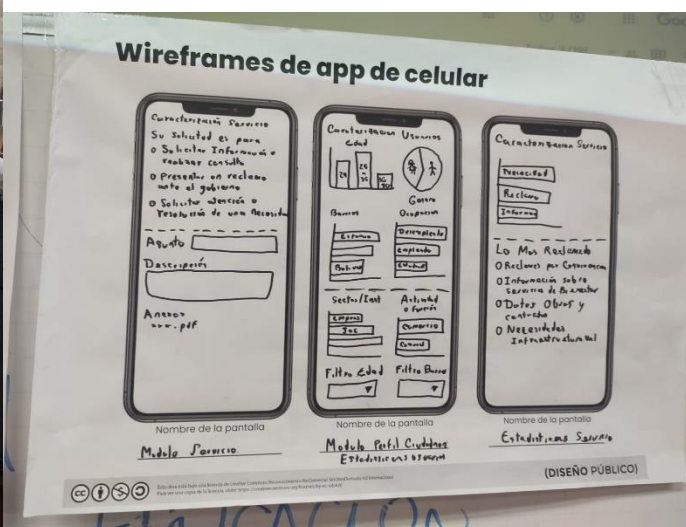 Goo
Wireframes de app de celular
Caracterización Servicio
Su Solicitud es para
o Solicitar Información o
realizar consulta
o Presentar un reclamo
ante el gobierno
o Solicitar atención o
resolución de una Necesidad
Asunto
Descripción
Anexos
xxx.pdf
Nombre de la pantalla
Modulo Servicio.
Caracterizacion Usuarios
Edad
Genero
Barrios
Ocupacion
Desempleado
empleado
Bolivar
Sector/Inst
Actividad
o función
Empresa
JAC
Comercio
Filtro Edad
Filtro Barrio
Nombre de la pantalla
Modulo Perfil Ciudadano
Estadisticas
Caracterizacion Servicio
Necesidad
Reclamo
Informa
Lo Mas Reclamado
o Reclamos por
o Información sobre
servicio de Bienestar
o Datos Obras y
contratos
o Necesidades
Infraestructura
Nombre de la pantalla
Estadisticas Servicio
cc
(DISEÑO PÚBLICO)